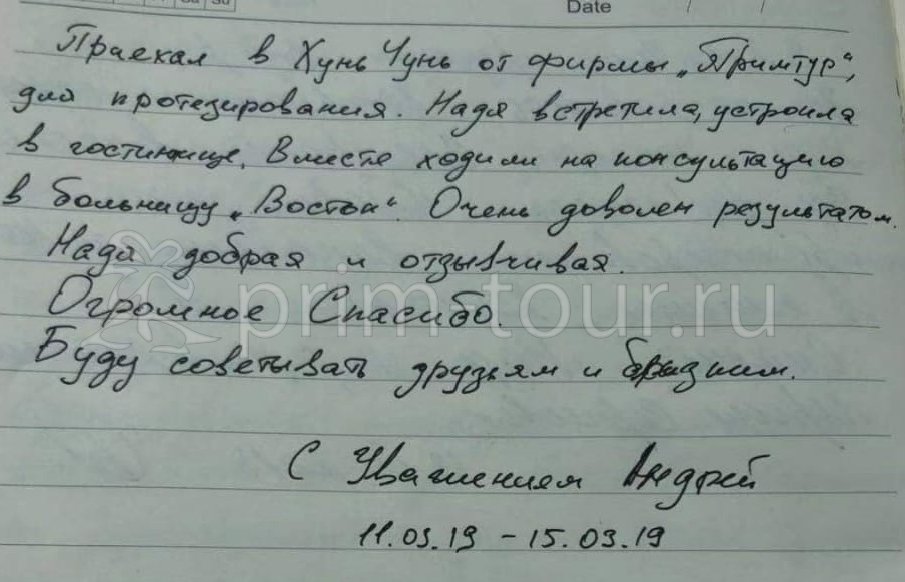 Date
Приехал в Хунь Чунь от фирмы „Примтур“,
для протезирования. Надя встретила, устроила
в гостинице. Вместе ходили на консультацию
в больницу „Восток“. Очень доволен результатом.
Надя добрая и отзывчивая.
prim-tour.ru
Огромное Спасибо.
Буду советывать друзьям и близким.
С Уважением Андрей
11.03.19 – 15.03.19